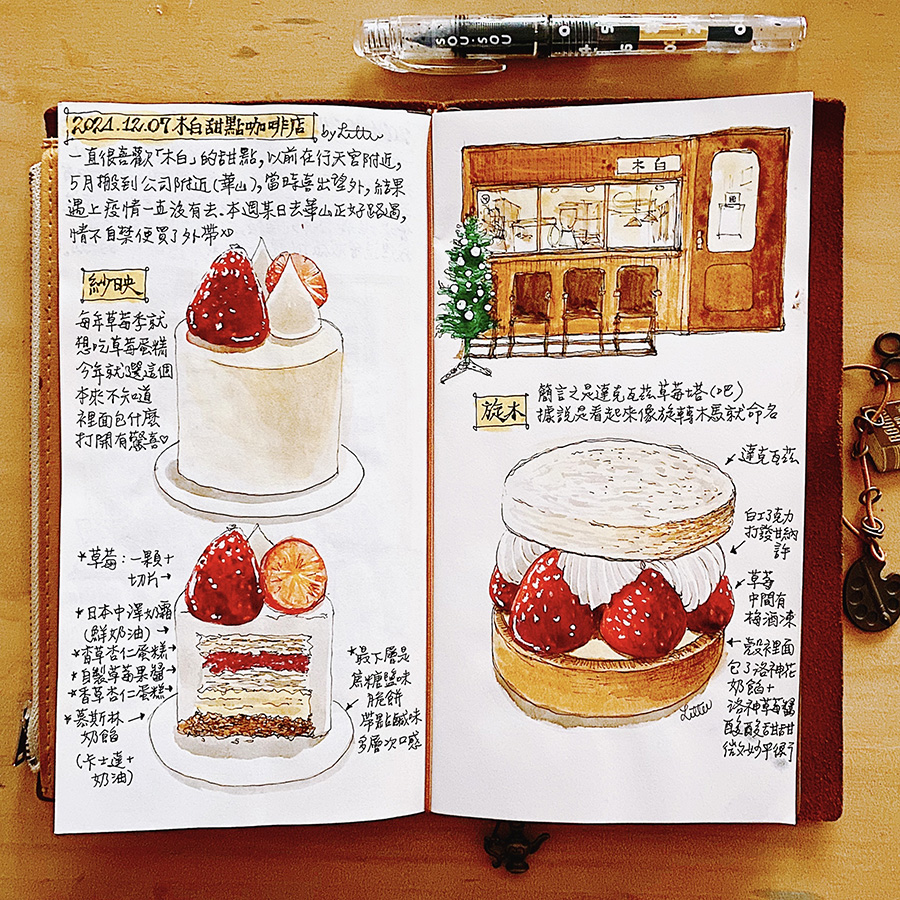 SOU·SOU
2021.12.07 木白甜點咖啡店
by Littu
一直很喜歡「木白」的甜點，以前在行天宮附近，
5月搬到公司附近(華山)，當時喜出望外，結果
遇上疫情一直沒有去。本週某日去華山正好路過，
情不自禁便買了外帶XD
紗映
每年草莓季就
想吃草莓蛋糕
今年就選這個
本來不知道
裡面包什麼
打開有驚喜♡
*草莓：一顆+
切片→
*日本中澤奶霜
(鮮奶油)→
*香草杏仁蛋糕→
*自製草莓果醬→
*香草杏仁蛋糕→
*慕斯林→
奶餡
(卡士達+
奶油)
*最下層是
焦糖鹽味
脆餅
帶點鹹味
多層次口感
木白
旋木
簡言之是達克瓦茲草莓塔(吧)
據說是看起來像旋轉木馬就命名
達克瓦茲
白巧克力
打發甘納
許
草莓
中間有
梅酒凍
殼裡面
包了洛神花
奶餡+
洛神草莓醬
酸酸甜甜
微妙平衡
Littu